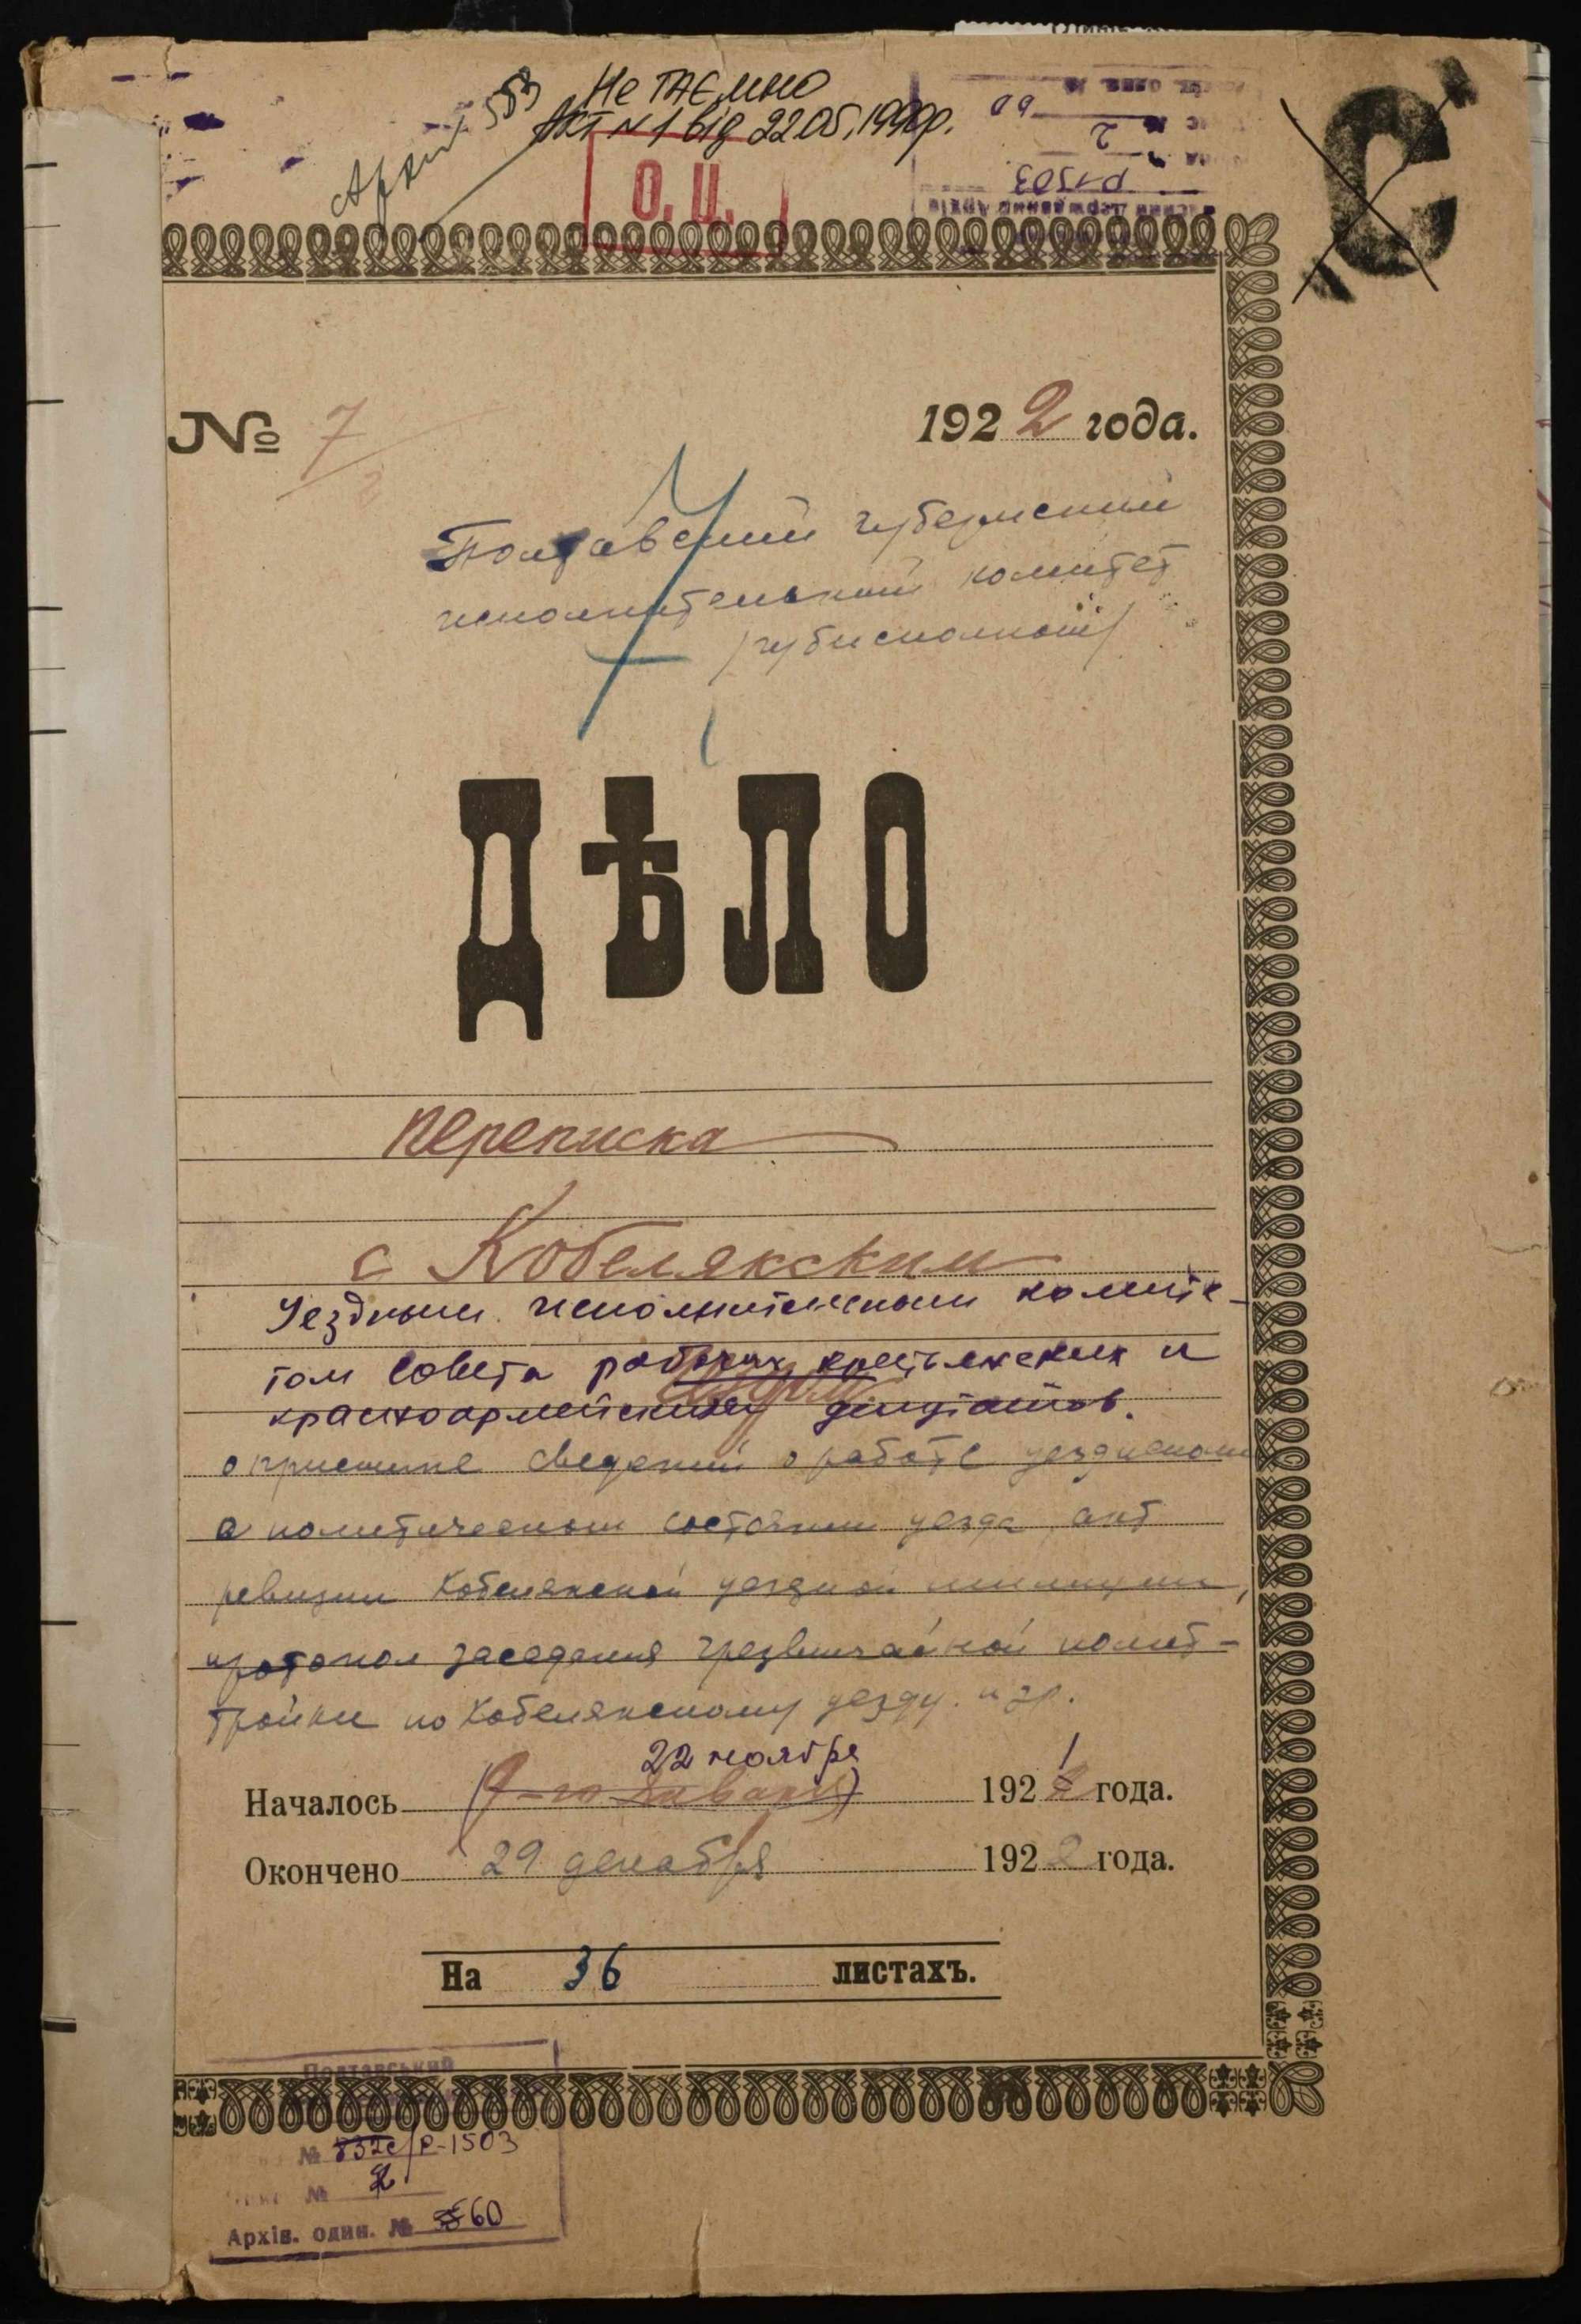 Не таємно
Акт № 1 від 22.05.1990р.
О.Ц.
Р-1503
2
С
№ 7/2
1922 года.
Полтавский губернский
исполнительный комитет
/губисполком/
ДѢЛО
Переписка
с Кобелякским
Уездным исполнительным комите-
том Совета рабочих, крестьянских и
красноармейских депутатов.
о присылке сведений о работе уездисполкома
о политическом состоянии уезда, акт
ревизии Кобелякской уездной милиции,
протокол заседания чрезвычайной полит-
тройки по Кобелякскому уезду. и др.
22 ноября
Началось (9-го января) 1921 года.
Окончено 29 декабря 1922 года.
На 36 листахъ.
Полтавський
№ 832с/Р-1503
№ 2
Архів. один. № 60